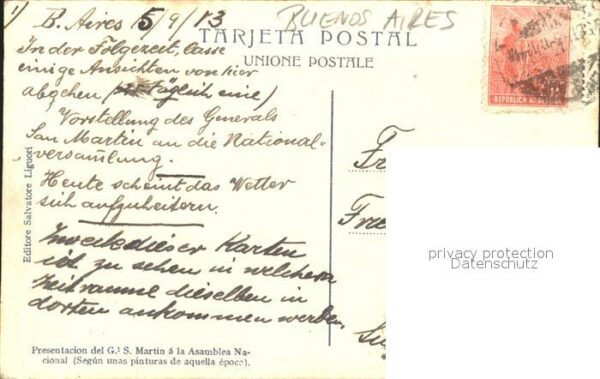 1) B. Aires 15/9/13
BUENOS AIRES
TARJETA POSTAL
UNIONE POSTALE
In der Folgezeit, lasse
einige Ansichten von hier
abgehen (täglich eine)
Vorstellung des Generals
San Martin an die National-
versam̄lung.
Heute scheint das Wetter
sich aufzuheitern.
Zweck dieser Karten
ist zu sehen in welchem
Zeitraume dieselben in
dorten ankommen werden.
Editore Salvatore Liguori
Presentacion del G.l S. Martin á la Asamblea Na-
cional (Según unas pinturas de aquella época).
REPUBLICA
Fr
privacy protection
Datenschutz